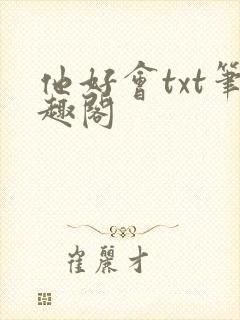 他好會txt筆
趣閣
崔麗才